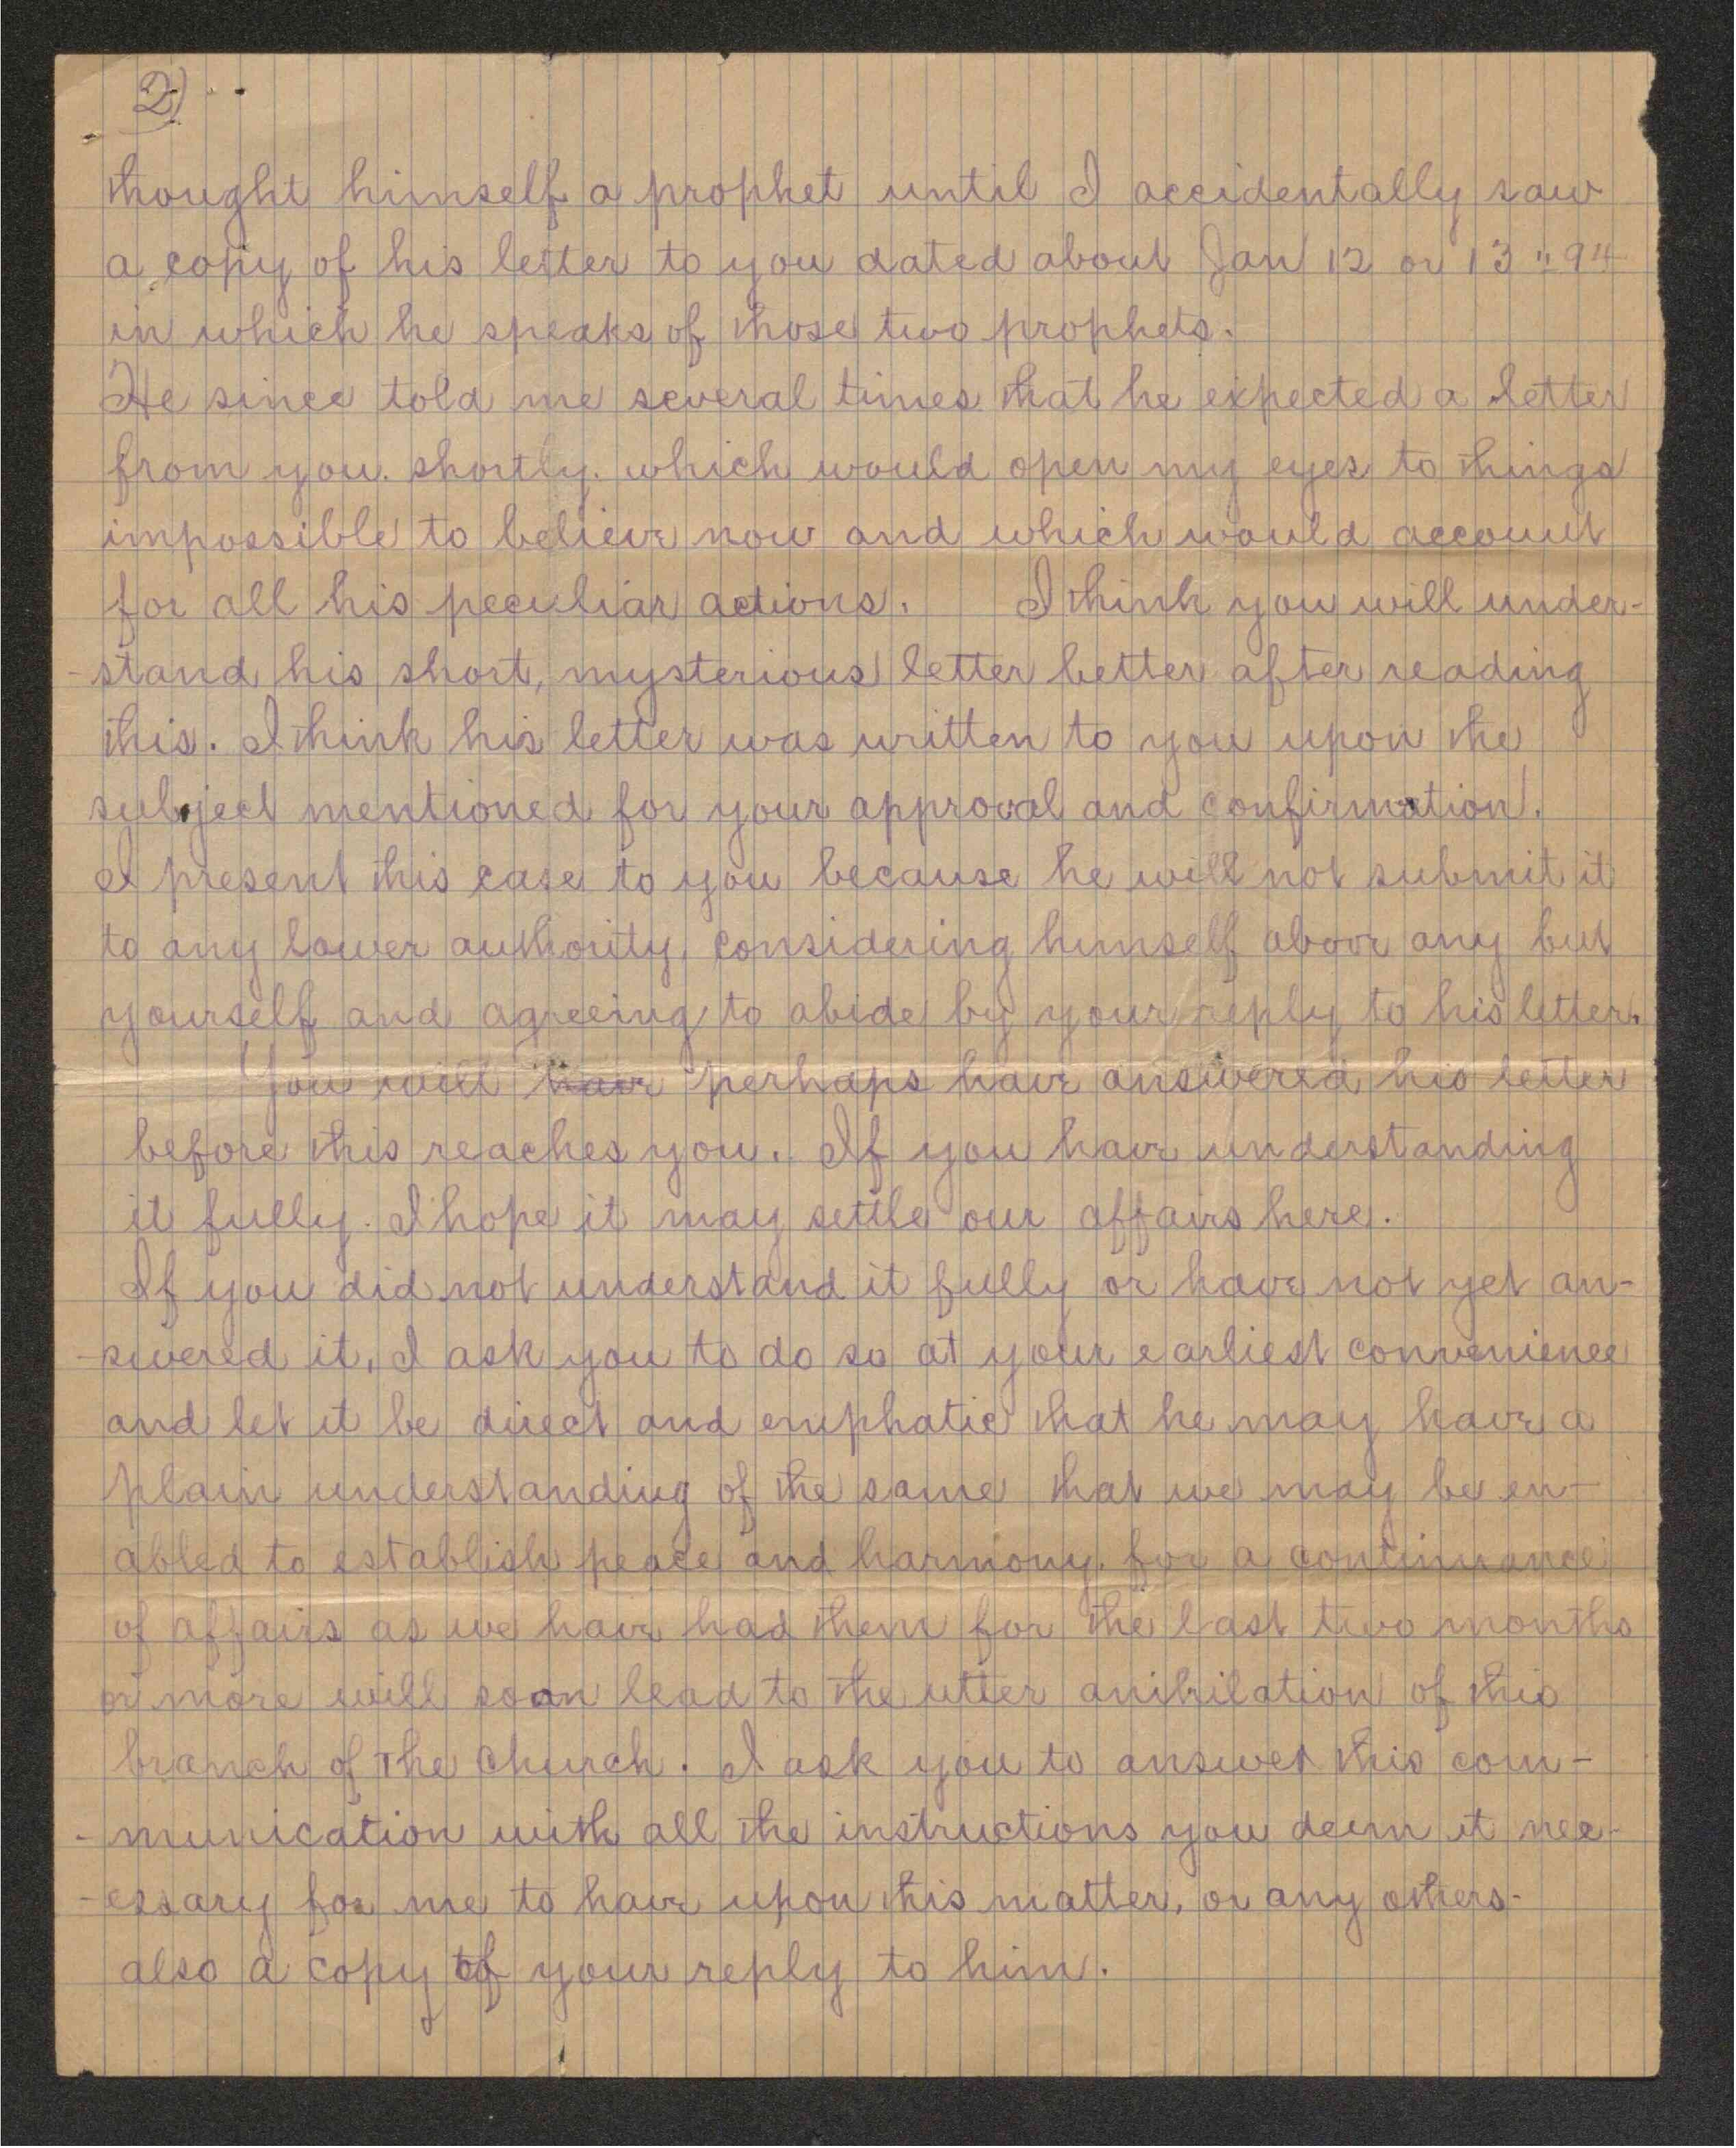 2)
thought himself a prophet until I accidentally saw
a copy of his letter to you dated about Jan 12 or 13 "94
in which he speaks of those two prophets.
He since told me several times that he expected a letter
from you. shortly. which would open my eyes to things
impossible to believe now and which would account
for all his peculiar actions. I think you will under-
-stand his short, mysterious letter better after reading
this. I think his letter was written to you upon the
subject mentioned for your approval and confirmation.
I present this case to you because he will not submit it
to any lower authority, considering himself above any but
yourself and agreeing to abide by your reply to his letter.
You will have perhaps have answered his letter
before this reaches you. If you have understanding
it fully. I hope it may settle our affairs here.
If you did not understand it fully or have not yet an-
-swered it, I ask you to do so at your earliest convenience
and let it be direct and emphatic that he may have a
plain understanding of the same that we may be en-
abled to establish peace and harmony. for a continuance
of affairs as we have had them for the last two months
or more will soon lead to the utter anihilation of this
branch of the church. I ask you to answer this com-
-munication with all the instructions you deem it nec-
-essary for me to have upon this matter, or any others-
also a copy of your reply to him.